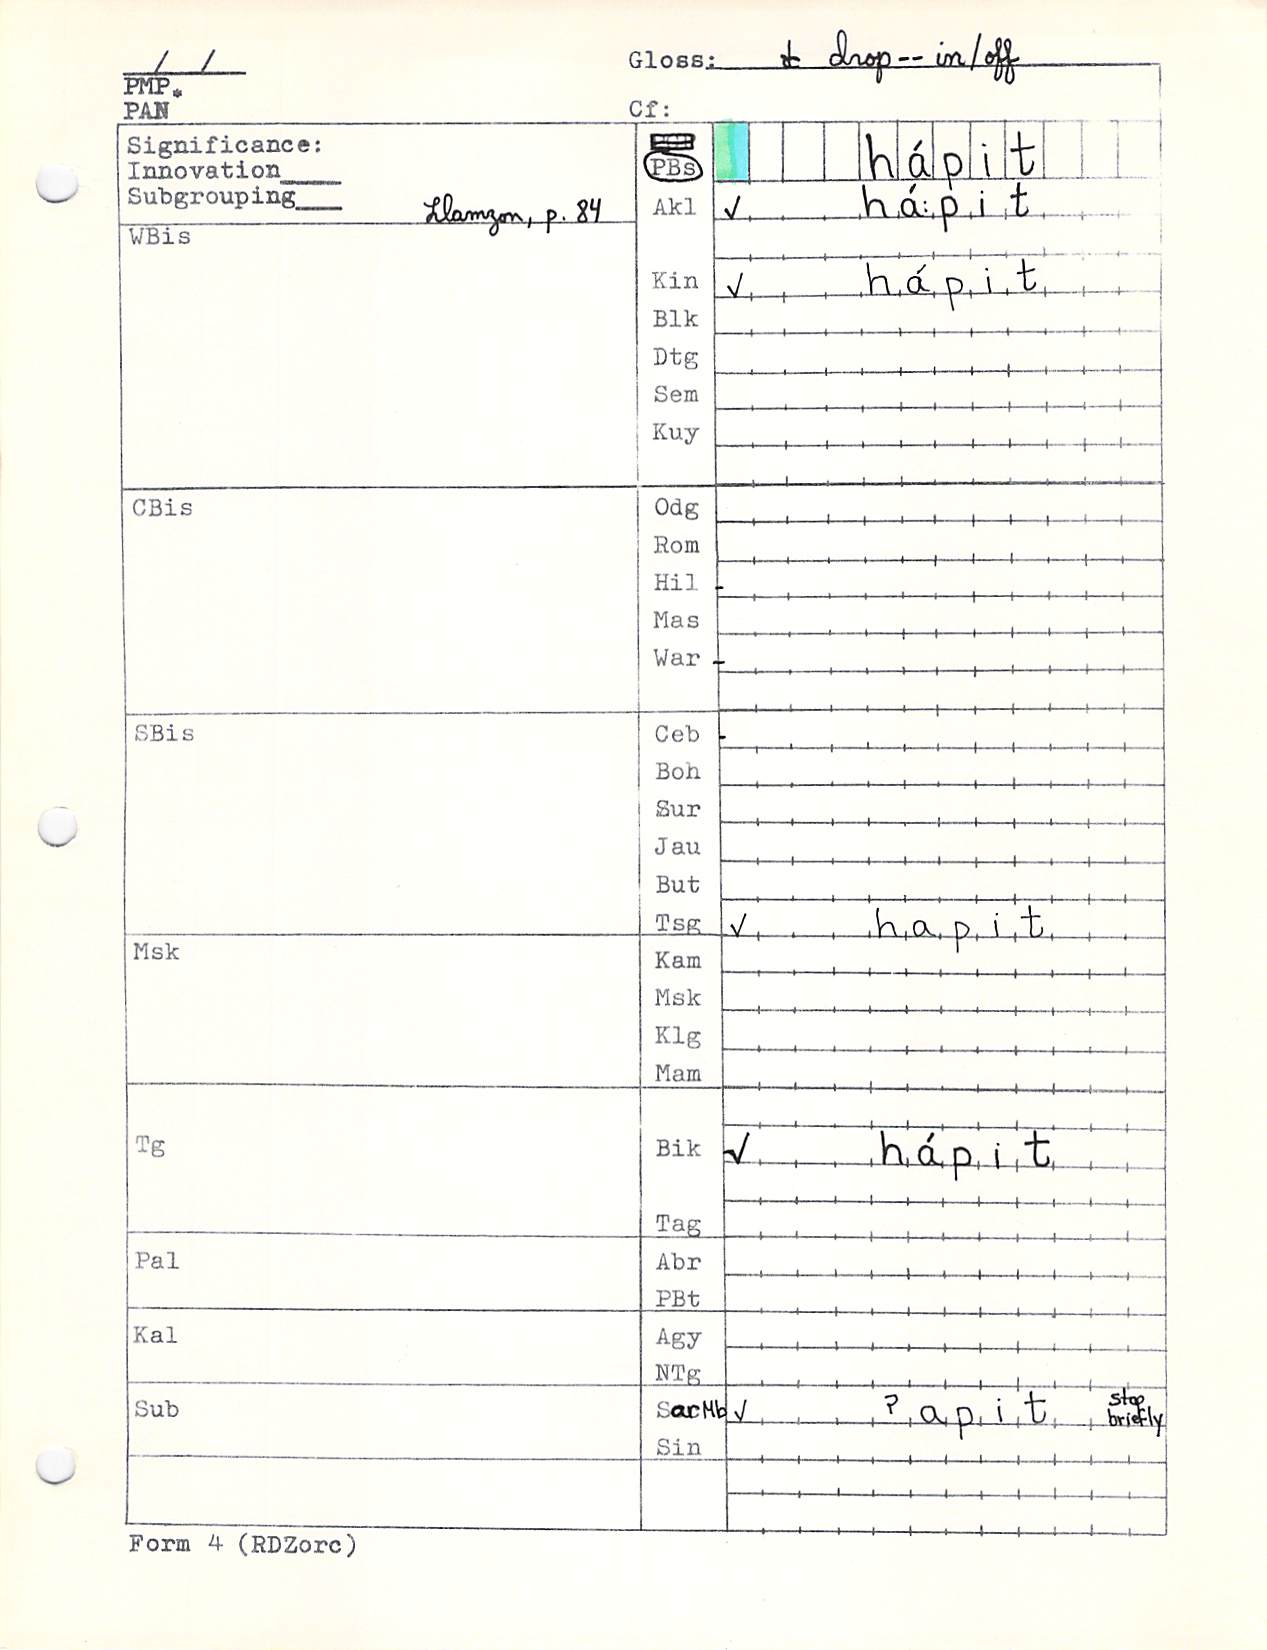 / /
Gloss: drop -- in/off
PMP.
PAN
Cf:
Significance:
Innovation
Subgrouping
Llamzon, p. 84
PBs hápit
Akl ✓ há:pit
WBis
Kin ✓ hápit
Blk
Dtg
Sem
Kuy
CBis
Odg
Rom
Hil
Mas
War
SBis
Ceb
Boh
Sur
Jau
But
Tsg ✓ hapit
Msk
Kam
Msk
Klg
Mam
Tg
Bik ✓ hápit
Tag
Pal
Abr
PBt
Kal
Agy
NTg
Sub
SacMb ✓ ?apit stop briefly
Sin
Form 4 (RDZorc)